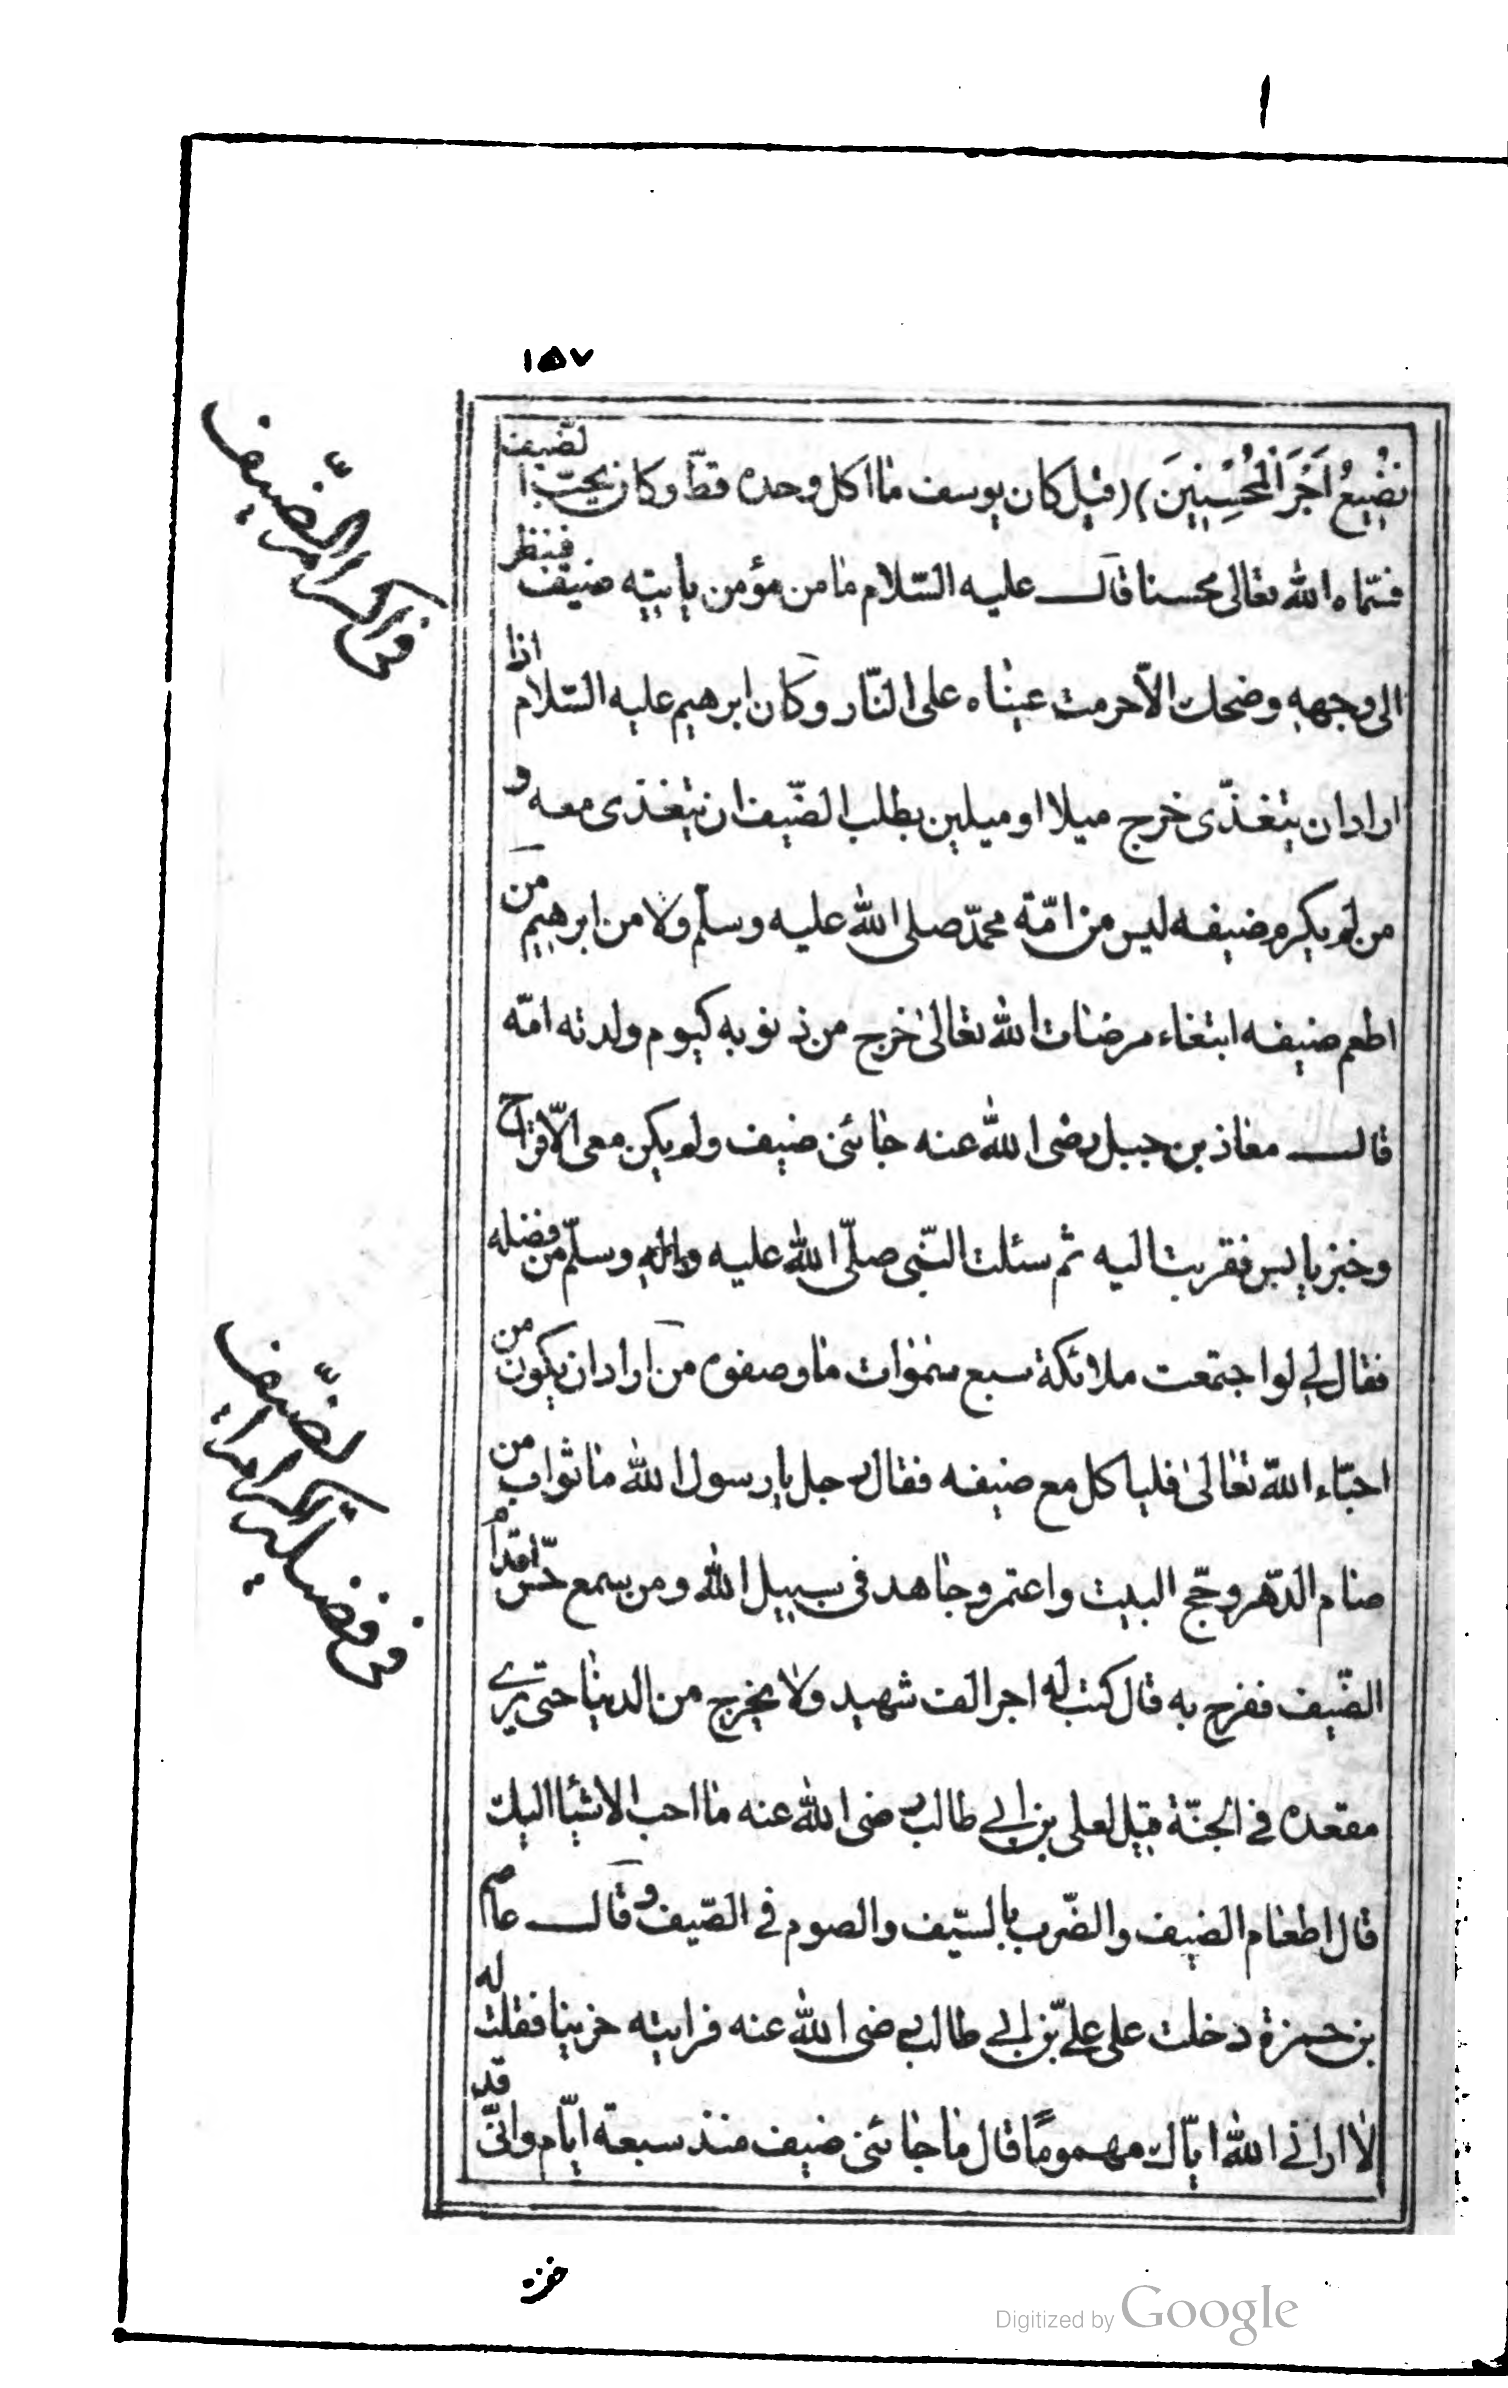 ١٥٧
نُضِيعُ اَجْرَ الْمُحْسِنِينَ) (قيل كان يوسف ما اكل وحده قطّ وكان يحبّ الضّيف
فسّماه الله تعالى محسنا قال عليه السّلام ما من مؤمن ياتيه ضيف فينظر
الى وجهه وضحك الّا حرمت عيناه على النّار وكان ابرهيم عليه السّلام اذا
اراد ان يتغذّى خرج ميلا او ميلين يطلب الضّيف ان يتغذى معه و
من لم يكرم ضيفه ليس من امّة محمّد صلى الله عليه وسلّم ولا من ابرهيم من
اطعم ضيفه ابتغاء مرضات الله تعالى خرج من ذنوبه كيوم ولدته امّه
قال معاذ بن جبيل رضى الله عنه جائنى ضيف ولم يكن معى الّا قراح
وخبز يابس فقربت اليه ثم سئلت النّبى صلّى الله عليه واله وسلّم من فضله
فقال لى لو اجتمعت ملائكة سبع سموات ما وصفوه من اراد ان يكون من
احبّاء الله تعالى فلياكل مع ضيفه فقال رجل يا رسول الله ما ثواب من
صام الدّهر وحّج البيت واعتمر وجاهد فى سبيل الله ومن سمع حسّ اقدام
الضّيف ففرح به قال كتب له اجر الف شهيد ولا يخرج من الدينا حتى يرى
مقعده فى الجنّة قيل لعلى بن ابى طالب رضى الله عنه ما احب الاشيا اليك
قال اطعام الضيف والضّرب بالسّيف والصوم فى الصّيف و قال عاصم
بن حمزة دخلت على علىّ بن ابى طالب رضى الله عنه فرايته حزينا فقلت له
لا ارانى الله ايّاك مهمومًا قال ما جائنى ضيف منذ سبعة ايّام وانّى قد
فى اكرام الضّيف
فى فضيلة اكرام الضّيف
Digitized by Google